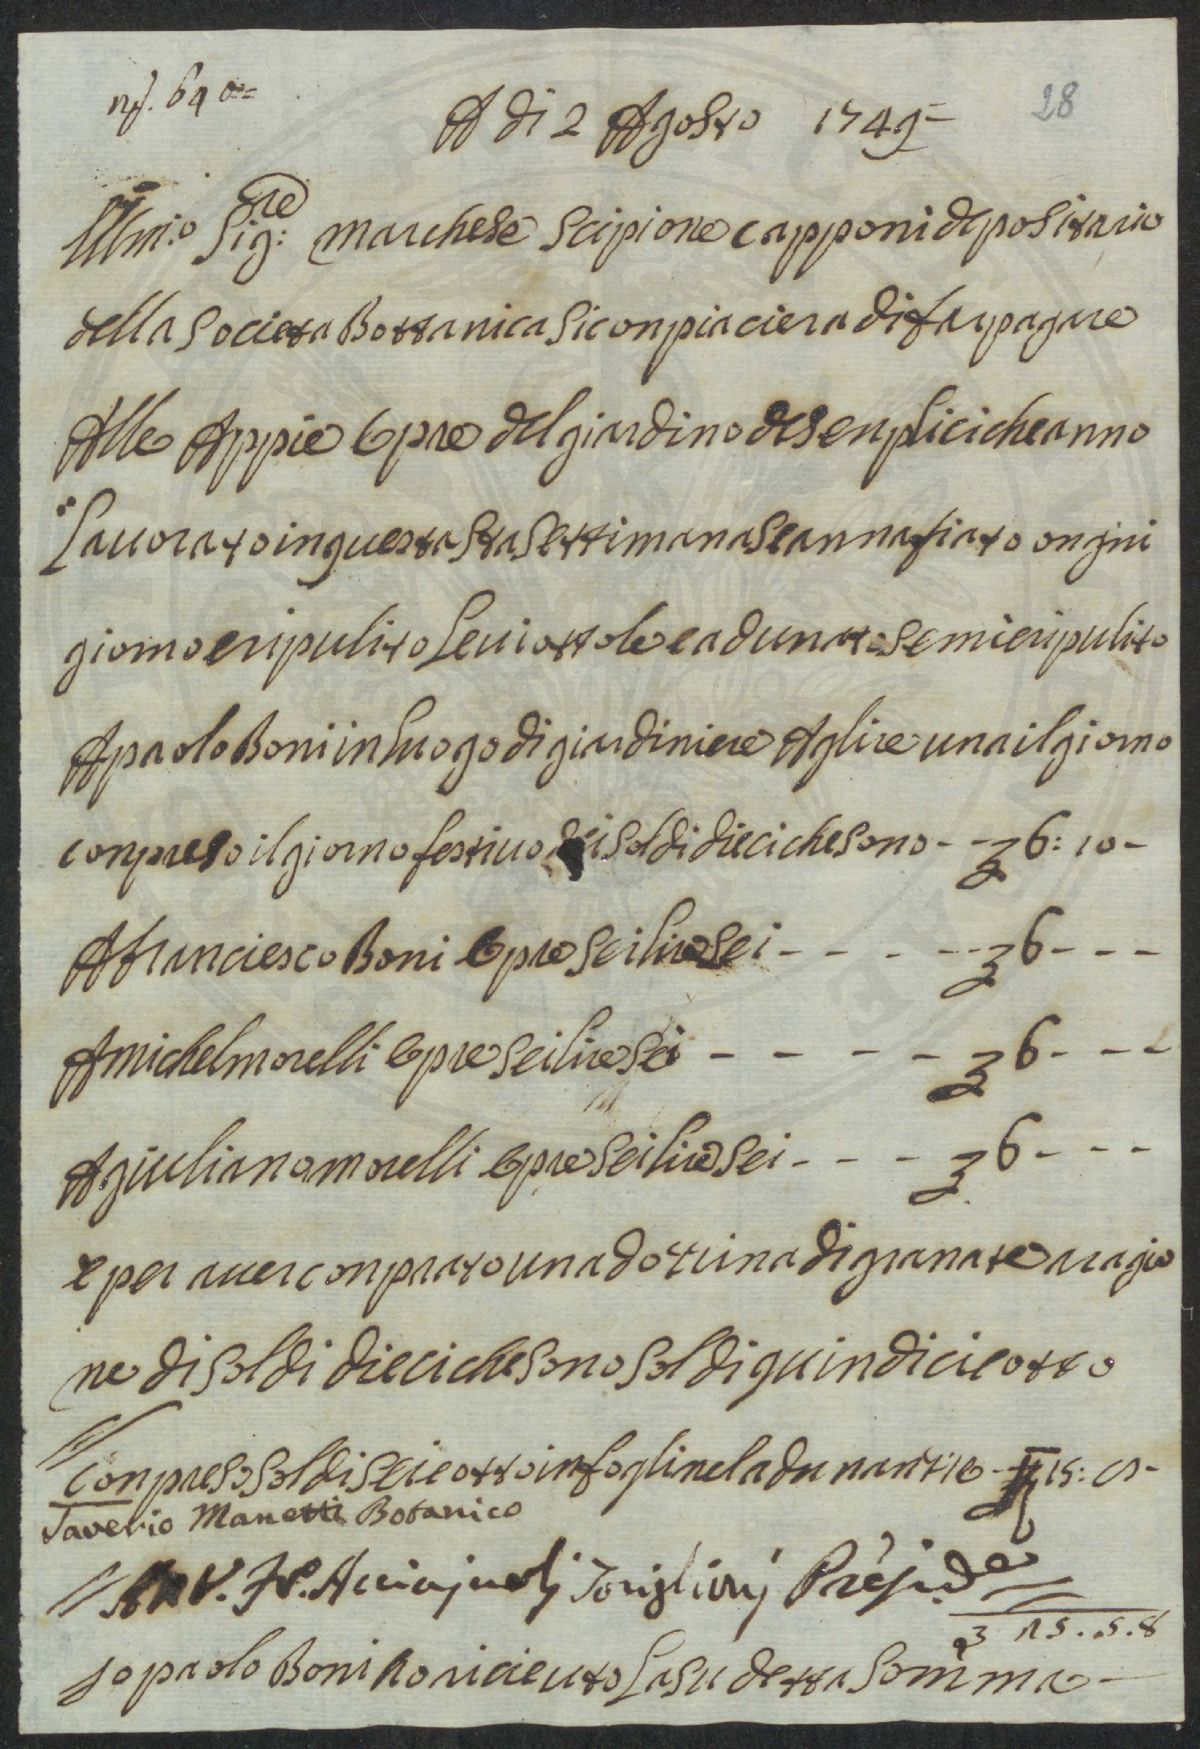 n.º 64
28
A di 2 Agosto 1749
Illmo: Sig:re marchese Scipione capponi depositario
della Societa Bottanica Si conpiaciera di far pagare
Alle Appie Opre del giardino de Senplici che anno
Lauorato in questa Sta Settimana Se annafiato ongni
giorno e ripulito Le uiottole e adunato Semi e ripulito
A paolo Boni in luogo di giardiniere A glire una il giorno
conpreso il giorno festiuo di Soldi dieci che Sono - 6: 10 -
A franciesco Boni Opre Sei lire Sei - - - - 6 - - -
A michel morelli Opre Sei lire Sei - - - - 6 - - -
A giuliano morelli Opre Sei lire Sei - - - 6 - - -
e per auer conprato una dozina di granate a ragio
ne di Soldi dieci che Sono Soldi quindici e otto
conpreso Soldi Sei e otto in fogli nel adunar
Saverio Manetti Botanico
Acciajuoli Toriglioni Preside
25..5.8
Jo paolo Boni o riceuto La Su detta Somma -